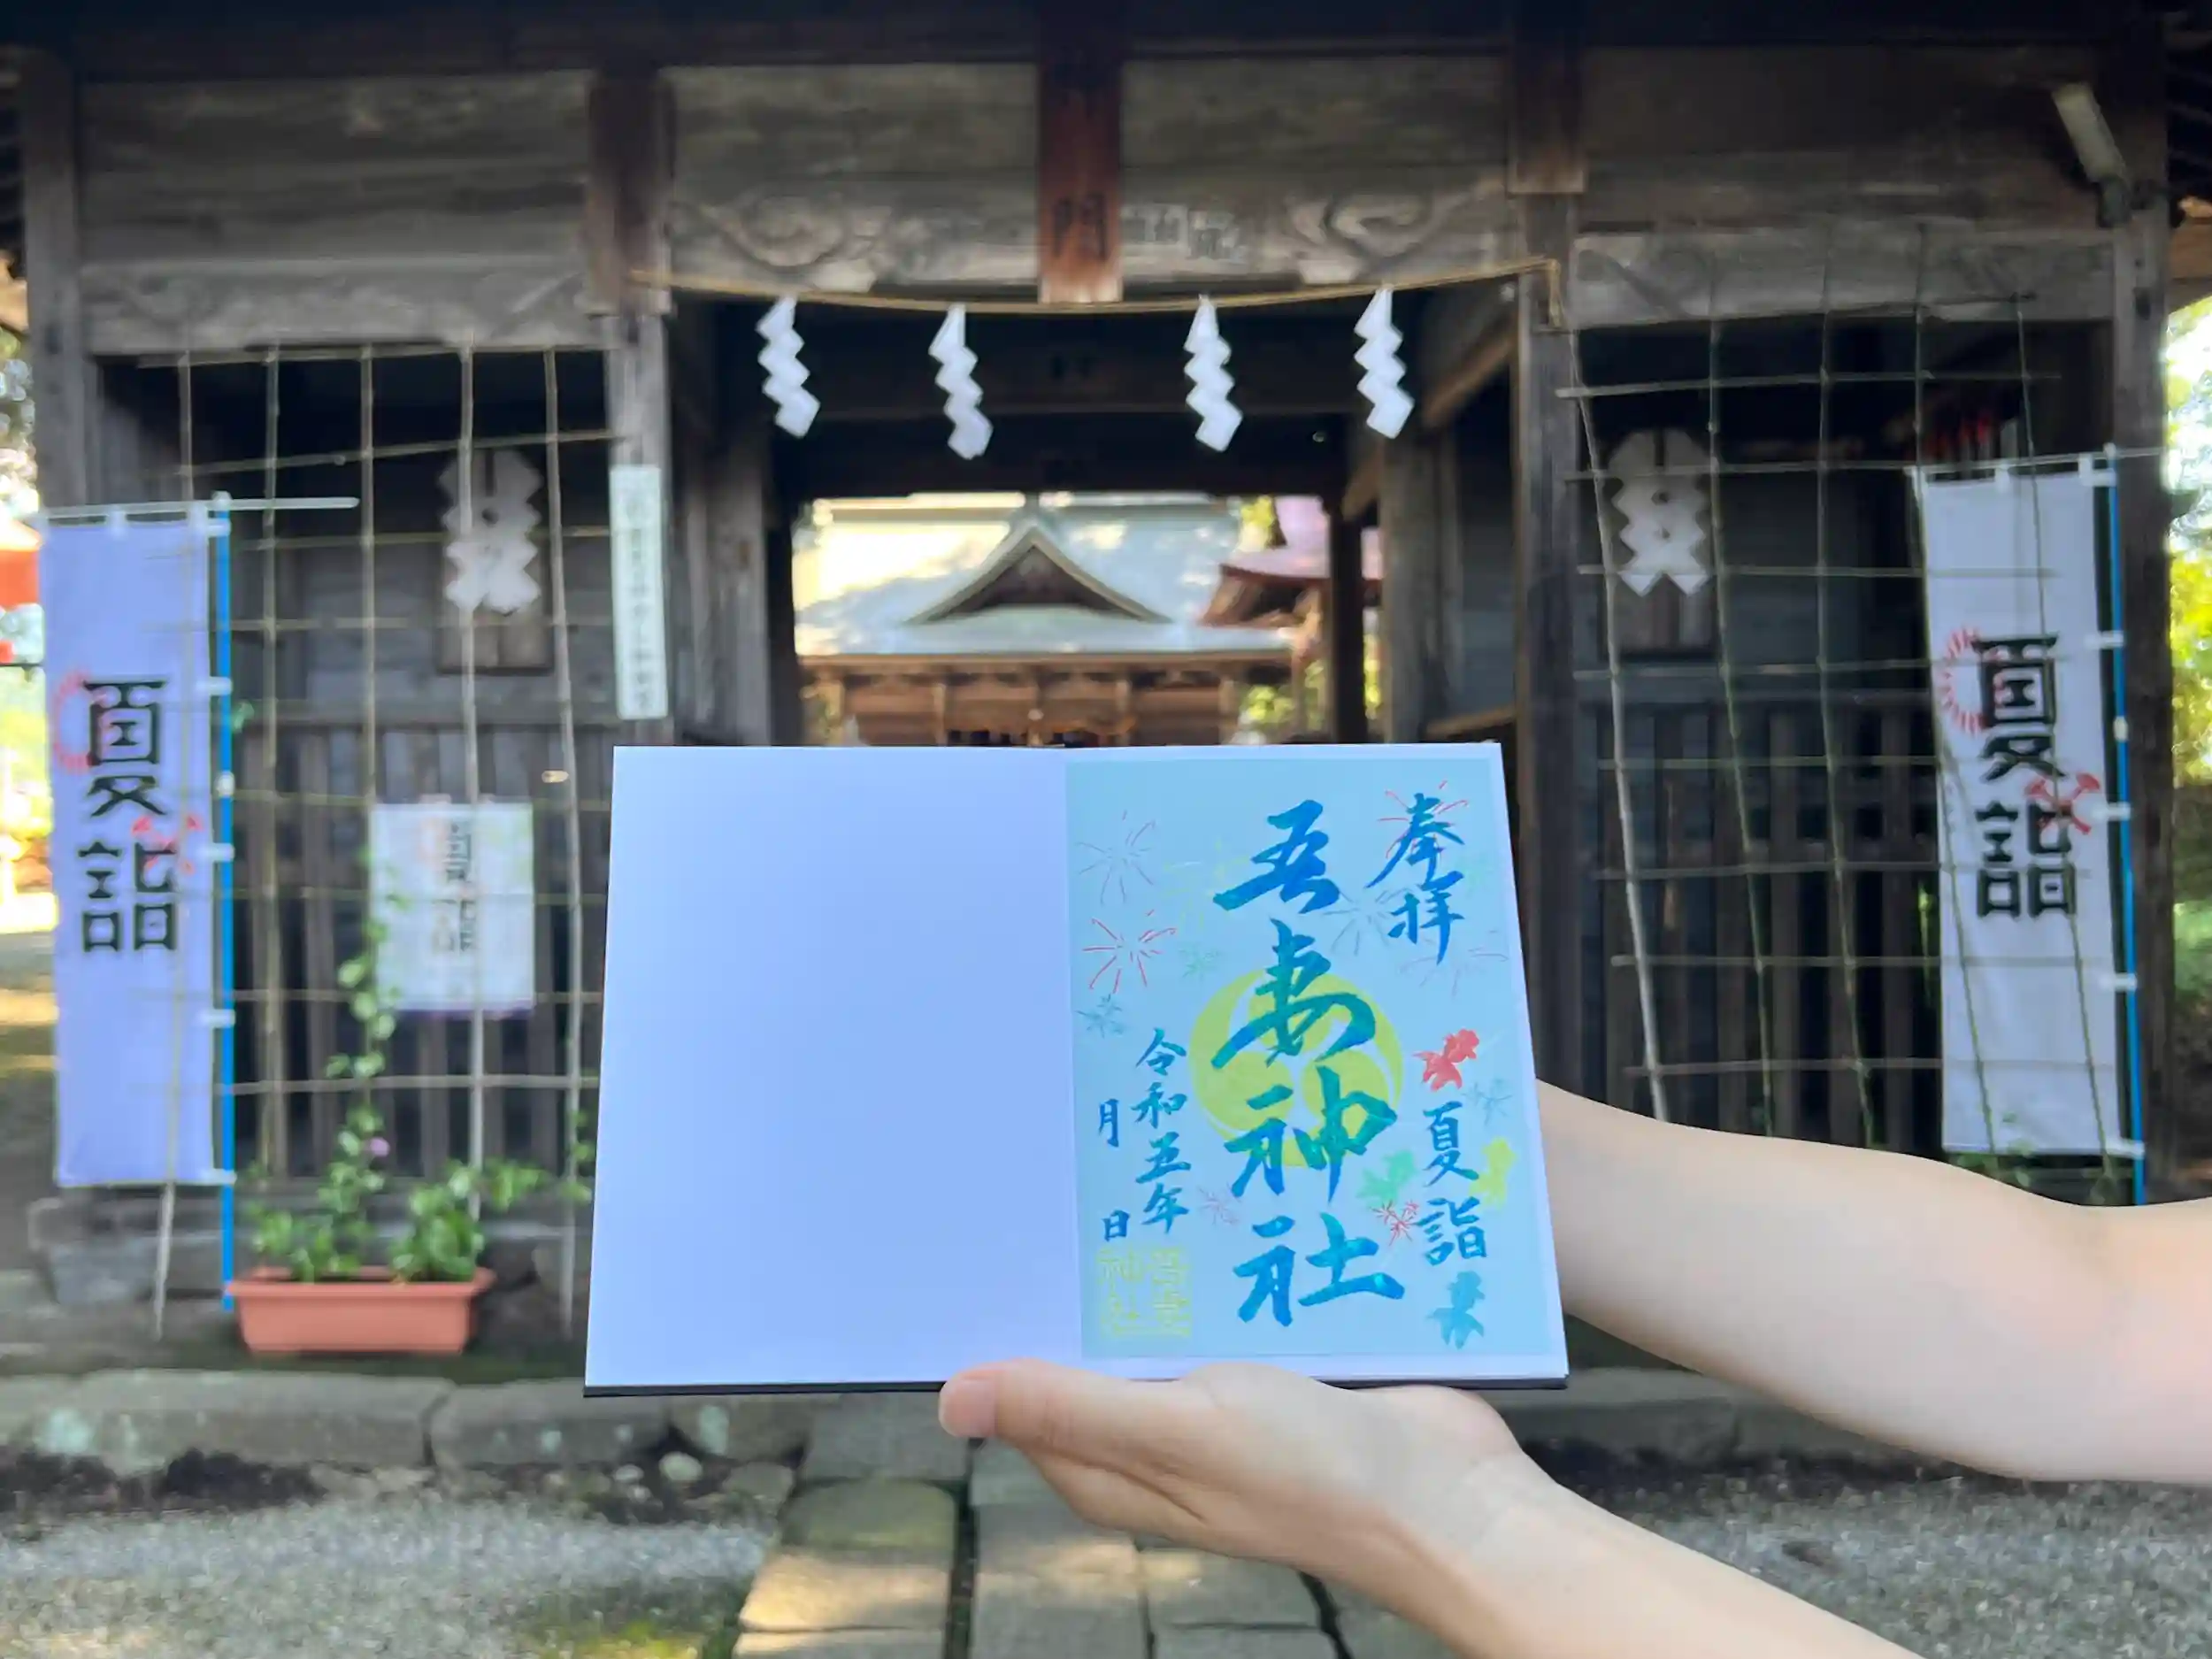 門
夏詣
夏詣
奉拝
夏詣
吾妻神社
令和五年
月 日
吾妻
神社